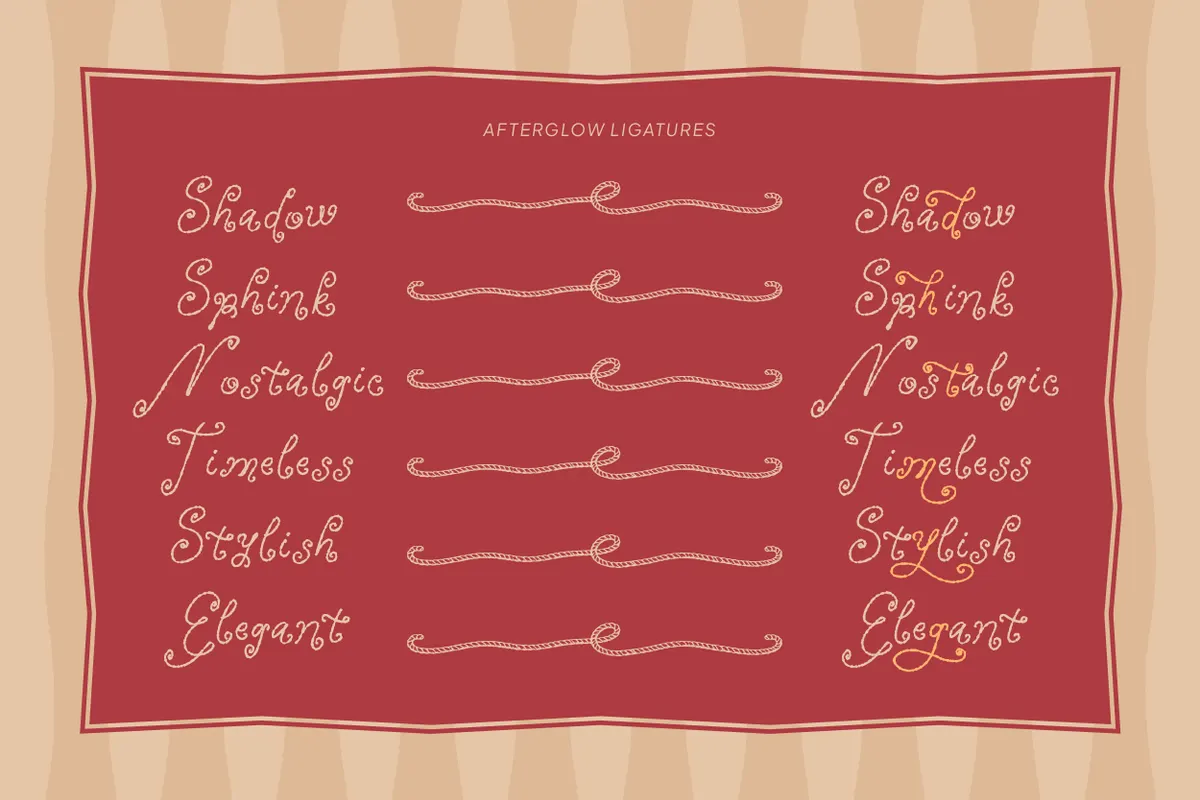 AFTERGLOW LIGATURES
Shadow Shadow
Sphink Sphink
Nostalgic Nostalgic
Timeless Timeless
Stylish Stylish
Elegant Elegant